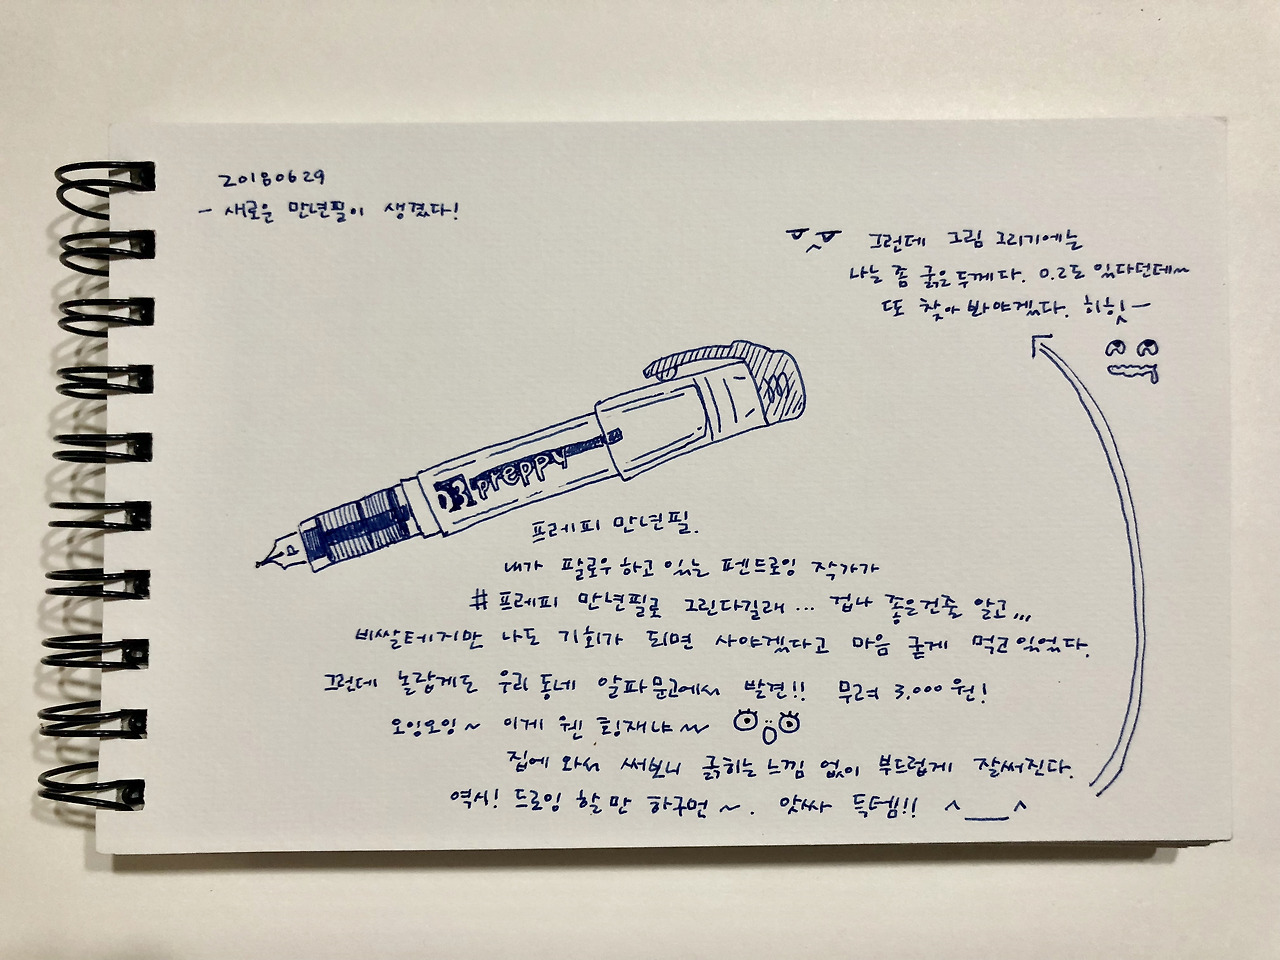 20180629
- 새로운 만년필이 생겼다!
그런데 그림 그리기에는
나는 좀 굵은 두께다. 0.2도 있다던데~
또 찾아봐야겠다. 히힛ㅡ
03 preppy
프레피 만년필.
내가 팔로우하고 있는 펜드로잉 작가가
#프레피 만년필로 그린다길래... 겁나 좋은건줄 알고,,,
비쌀테지만 나도 기회가 되면 사야겠다고 마음 굳게 먹고있었다.
그런데 놀랍게도 우리동네 알파문고에서 발견!! 무려 3,000원!
오잉오잉~ 이게 웬 횡재냐~
집에 와서 써보니 긁히는느낌 없이 부드럽게 잘써진다.
역시! 드로잉 할만 하구먼~. 앗싸 득템!! ^___^